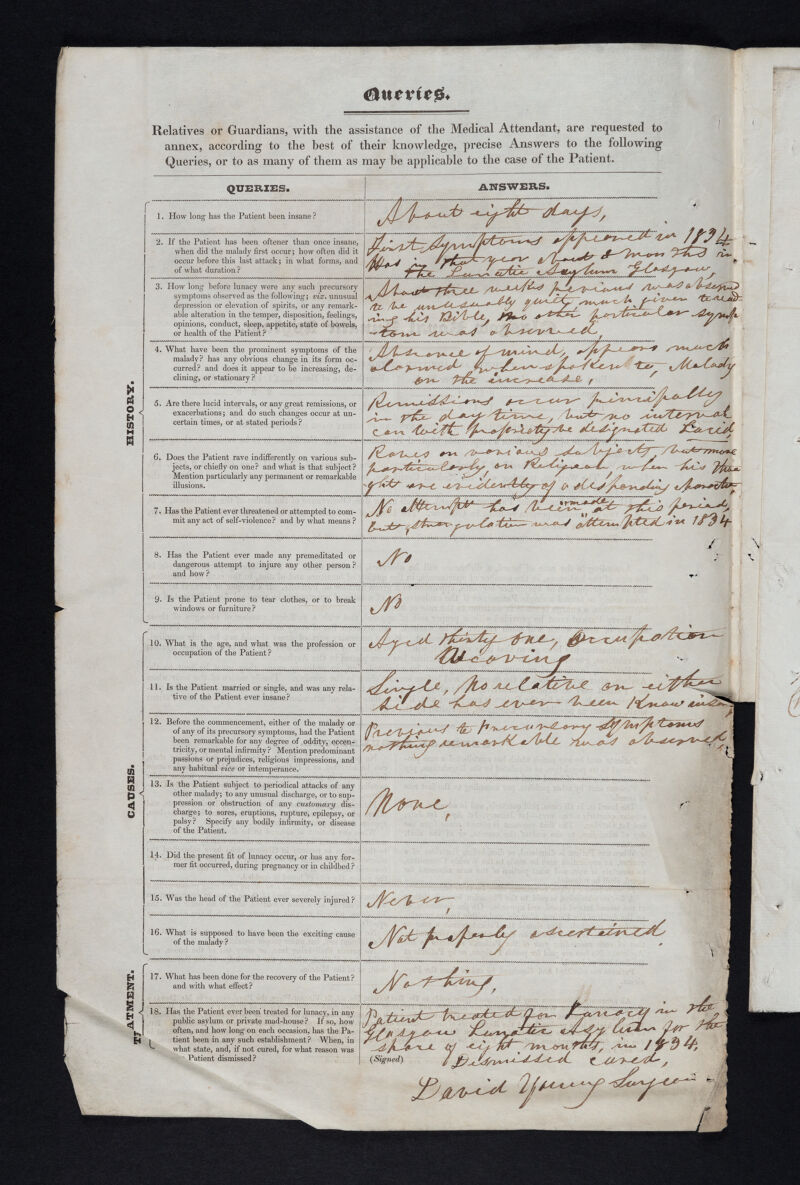 Queries.
Relatives or Guardians, with the assistance of the Medical Attendant, are requested to
annex, according to the best of their knowledge, precise Answers to the following
Queries, or to as many of them as may be applicable to the case of the Patient.
QUERIES.
ANSWERS.
HISTORY.
1. How long has the Patient been insane?
About eight days,
2. If the Patient has been oftener than once insane,
when did the malady first occur; how often did it
occur before this last attack; in what forms, and
of what duration?
First Symptoms appeared in 1834
Was in that year about 8 months in
the Lunatic Asylum Glasgow,
3. How long before lunacy were any such precursory
symptoms observed as the following; viz. unusual
depression or elevation of spirits, or any remark-
able alteration in the temper, disposition, feelings,
opinions, conduct, sleep, appetite, state of bowels,
or health of the Patient?
About three weeks previous was observed
to be unusually quiet, much given to read
ing his Bible, no other particular symp
tom was observed
4. What have been the prominent symptoms of the
malady? has any obvious change in its form oc-
curred? and does it appear to be increasing, de-
clining, or stationary?
Absence of mind, appears much
alarmed when spoken to, Malady
on the increase,
5. Are there lucid intervals, or any great remissions, or
exacerbations; and do such changes occur at un-
certain times, or at stated periods?
Remissions occur principally
in the day time, but no interval
can with propriety be designated Lucid
6. Does the Patient rave indifferently on various sub-
jects, or chiefly on one? and what is that subject?
Mention particularly any permanent or remarkable
illusions.
Raves on various subjects but more
particularly on Religion, when his thou
ght are evidently of a desponding character,
7. Has the Patient ever threatened or attempted to com-
mit any act of self-violence? and by what means?
No attempt has been made at this period,
but strangulation was attempted in 1834
8. Has the Patient ever made any premeditated or
dangerous attempt to injure any other person?
and how?
No
9. Is the Patient prone to tear clothes, or to break
windows or furniture?
No
CAUSES.
10. What is the age, and what was the profession or
occupation of the Patient?
Aged thirty one, Occupation
Weaving
11. Is the Patient married or single, and was any rela-
tive of the Patient ever insane?
Single, No relative on either
side has ever been Know insan
12. Before the commencement, either of the malady or
of any of its precursory symptoms, had the Patient
been remarkable for any degree of oddity, eccen-
tricity, or mental infirmity? Mention predominant
passions or prejudices, religious impressions, and
any habitual vice or intemperance.
Previous to precursory symptoms
nothing remarkable was observed,
13. Is the Patient subject to periodical attacks of any
other malady; to any unusual discharge, or to sup-
pression or obstruction of any customary dis-
charge; to sores, eruptions, rupture, epilepsy, or
palsy? Specify any bodily infirmity, or disease
of the Patient.
None,
14. Did the present fit of lunacy occur, or has any for-
mer fit occurred, during pregnancy or in childbed?
15. Was the head of the Patient ever severely injured?
Never,
16. What is supposed to have been the exciting cause
of the malady?
Not properly ascertained
17. What has been done for the recovery of the Patient?
and with what effect?
Nothing,
18. Has the Patient ever been treated for lunacy, in any
public asylum or private mad-house? If so, how
often, and how long on each occasion, has the Pa-
tient been in any such establishment? When, in
what state, and, if not cured, for what reason was
Patient dismissed?
Patient treated for Lunacy in the
Glasgow Lunatic Asylum for the
space of eight months, in 1834,
(Signed) Dismissed cured,
David Young Surgeon